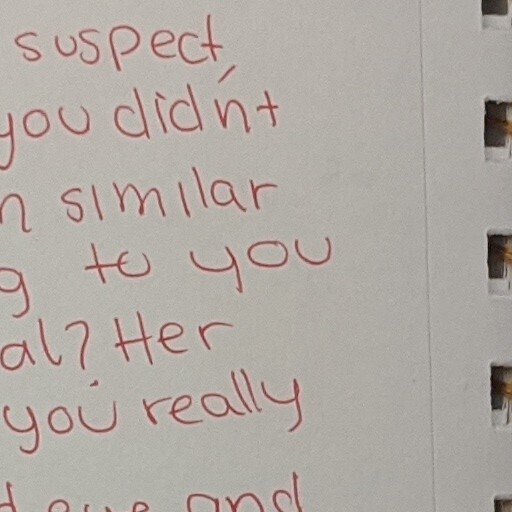 suspect,
you didn't
n similar
g to you
al? Her
you really
and